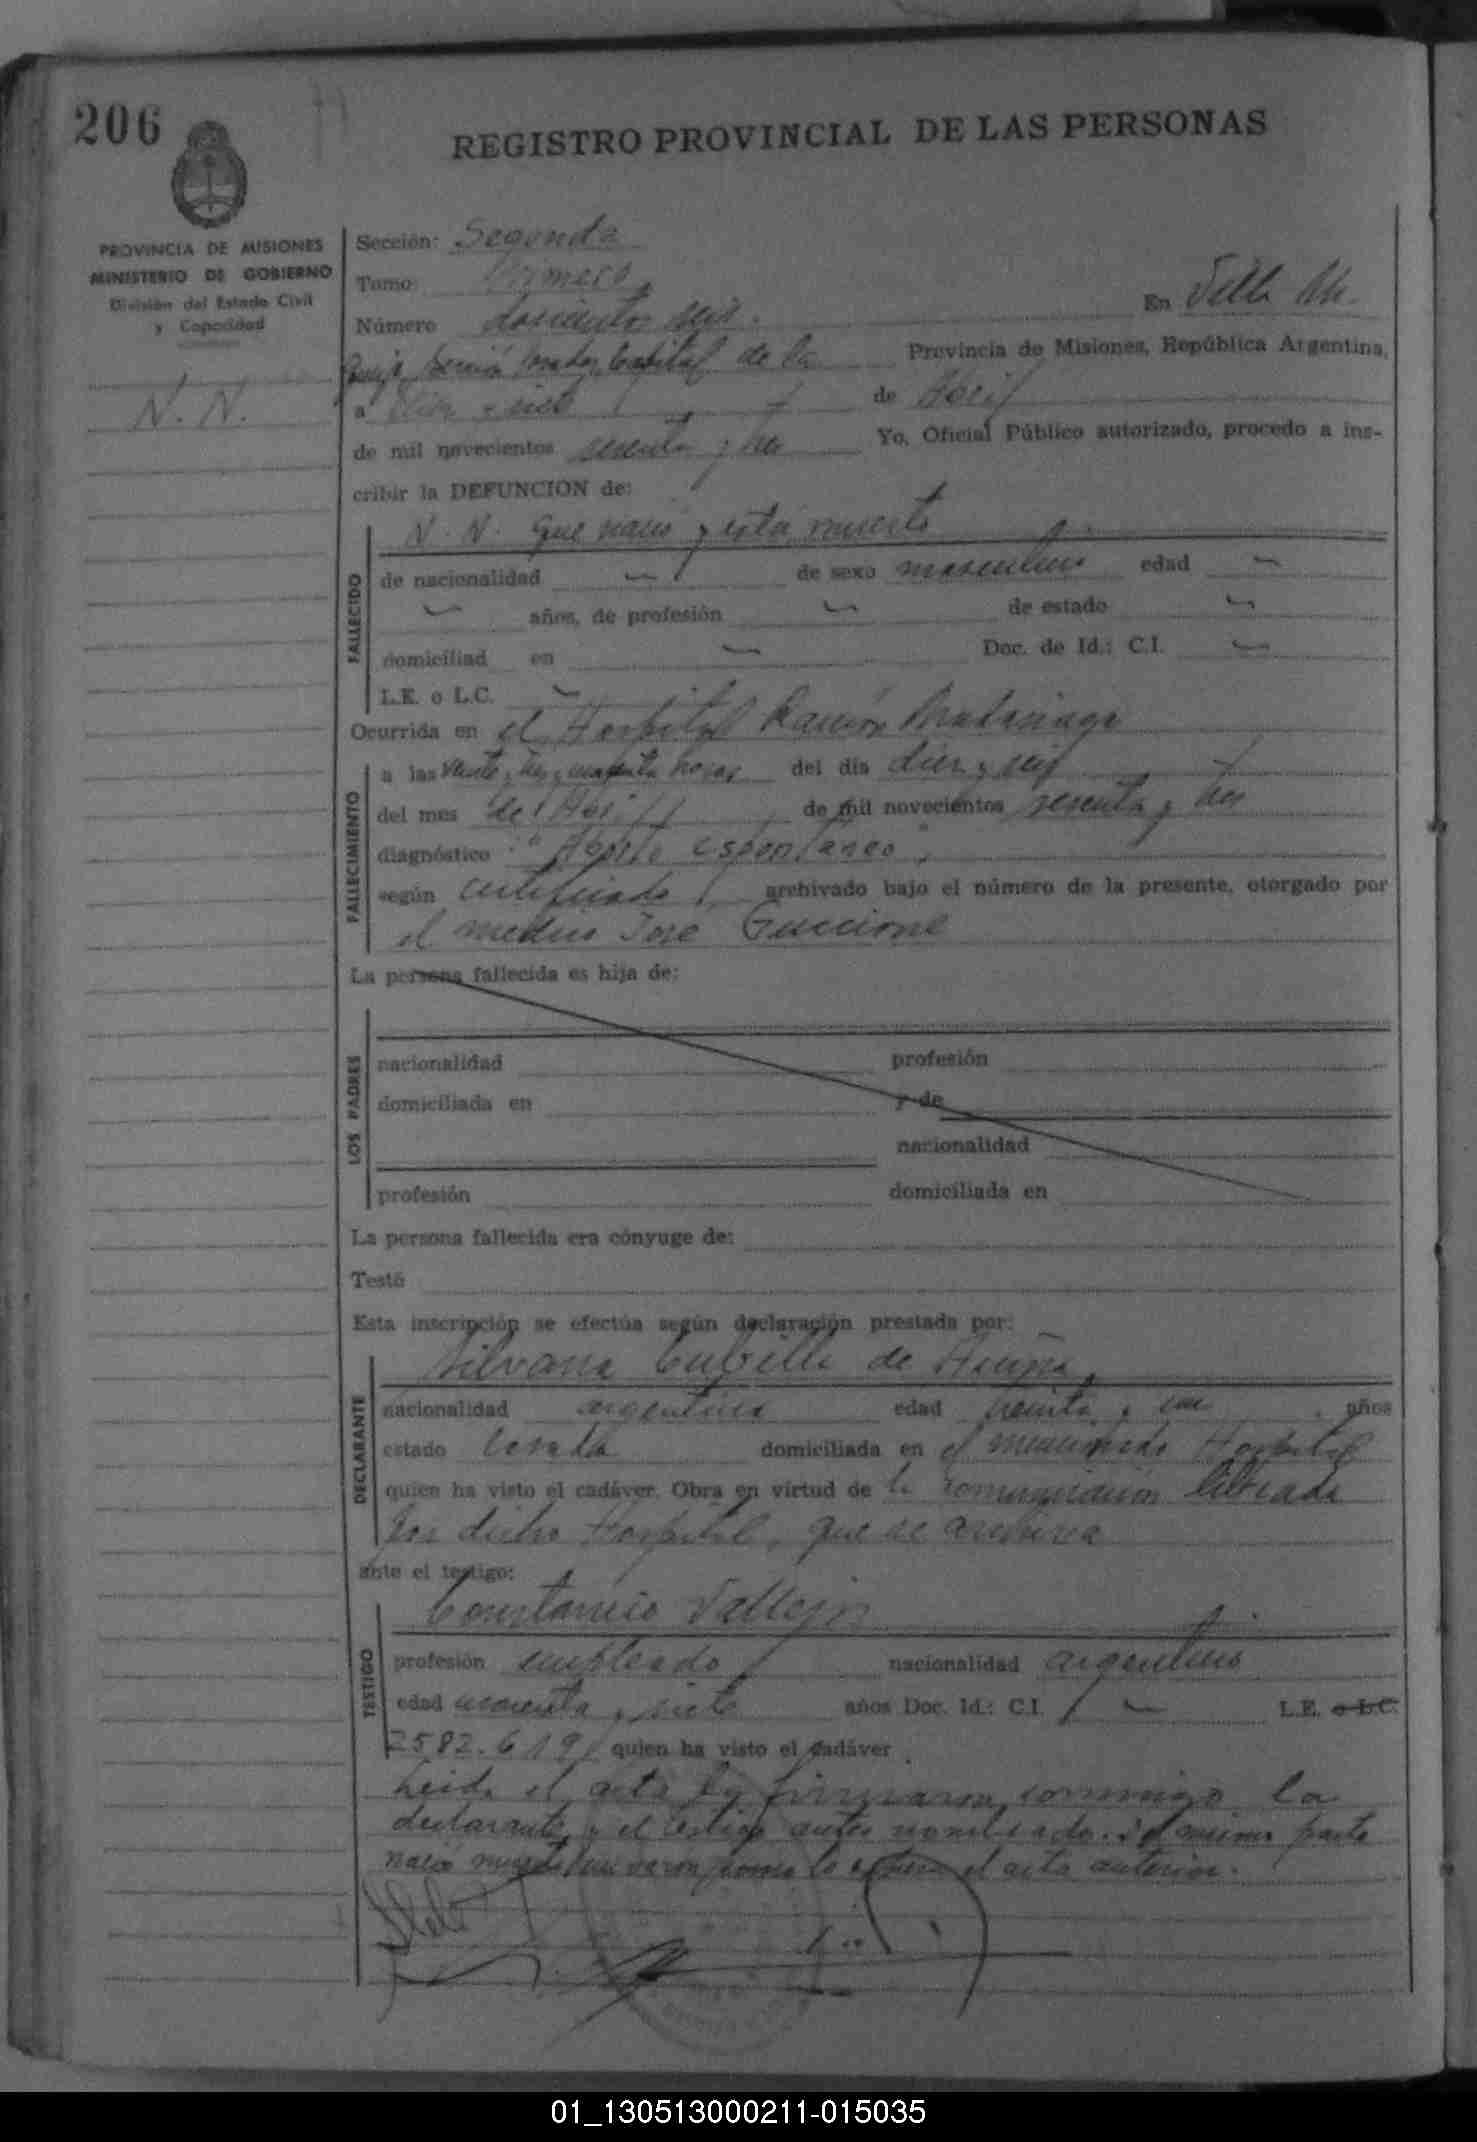 206
REGISTRO PROVINCIAL DE LAS PERSONAS
PROVINCIA DE MISIONES
MINISTERIO DE GOBIERNO
División del Estado Civil
y Capacidad
N. N.
Sección: Segunda
Tomo: Primero
Número doscientos seis.
En Villa
Capital de la Provincia de Misiones, República Argentina,
a diez y siete de Abril
de mil novecientos sesenta y tres Yo, Oficial Público autorizado, procedo a ins-
cribir la DEFUNCION de:
N. N. que nació y está muerto
FALLECIDO
de nacionalidad de sexo masculino edad
años, de profesión de estado
domiciliad en Doc. de Id.: C.I.
L.E. o L.C.
Ocurrida en el Hospital Ramón Madariaga
FALLECIMIENTO
a las veinte y tres y cuarenta horas del día diez y seis
del mes de Abril de mil novecientos sesenta y tres
diagnóstico "Aborto espontáneo",
según certificado archivado bajo el número de la presente, otorgado por
el médico José Guccione
La persona fallecida es hija de:
LOS PADRES
nacionalidad profesión
domiciliada en y de
nacionalidad
profesión domiciliada en
La persona fallecida era cónyuge de:
Testó
Esta inscripción se efectúa según declaración prestada por:
DECLARANTE
Silvana Cubilla de Acuña,
nacionalidad argentina edad treinta y años
estado casada domiciliada en el mencionado Hospital
quien ha visto el cadáver. Obra en virtud de la comunicación librada
por dicho Hospital, que se archiva
ante el testigo:
TESTIGO
Constancio Vallejos
profesión empleado nacionalidad argentino
edad cuarenta y siete años Doc. Id.: C.I. L.E. o L.C.
2582.619 quien ha visto el cadáver.
Leída el acta la firmaron conmigo la
declarante y el testigo antes nombrado. Del mismo parto
nació muerto un varón, como lo el acta anterior.
01_130513000211-015035